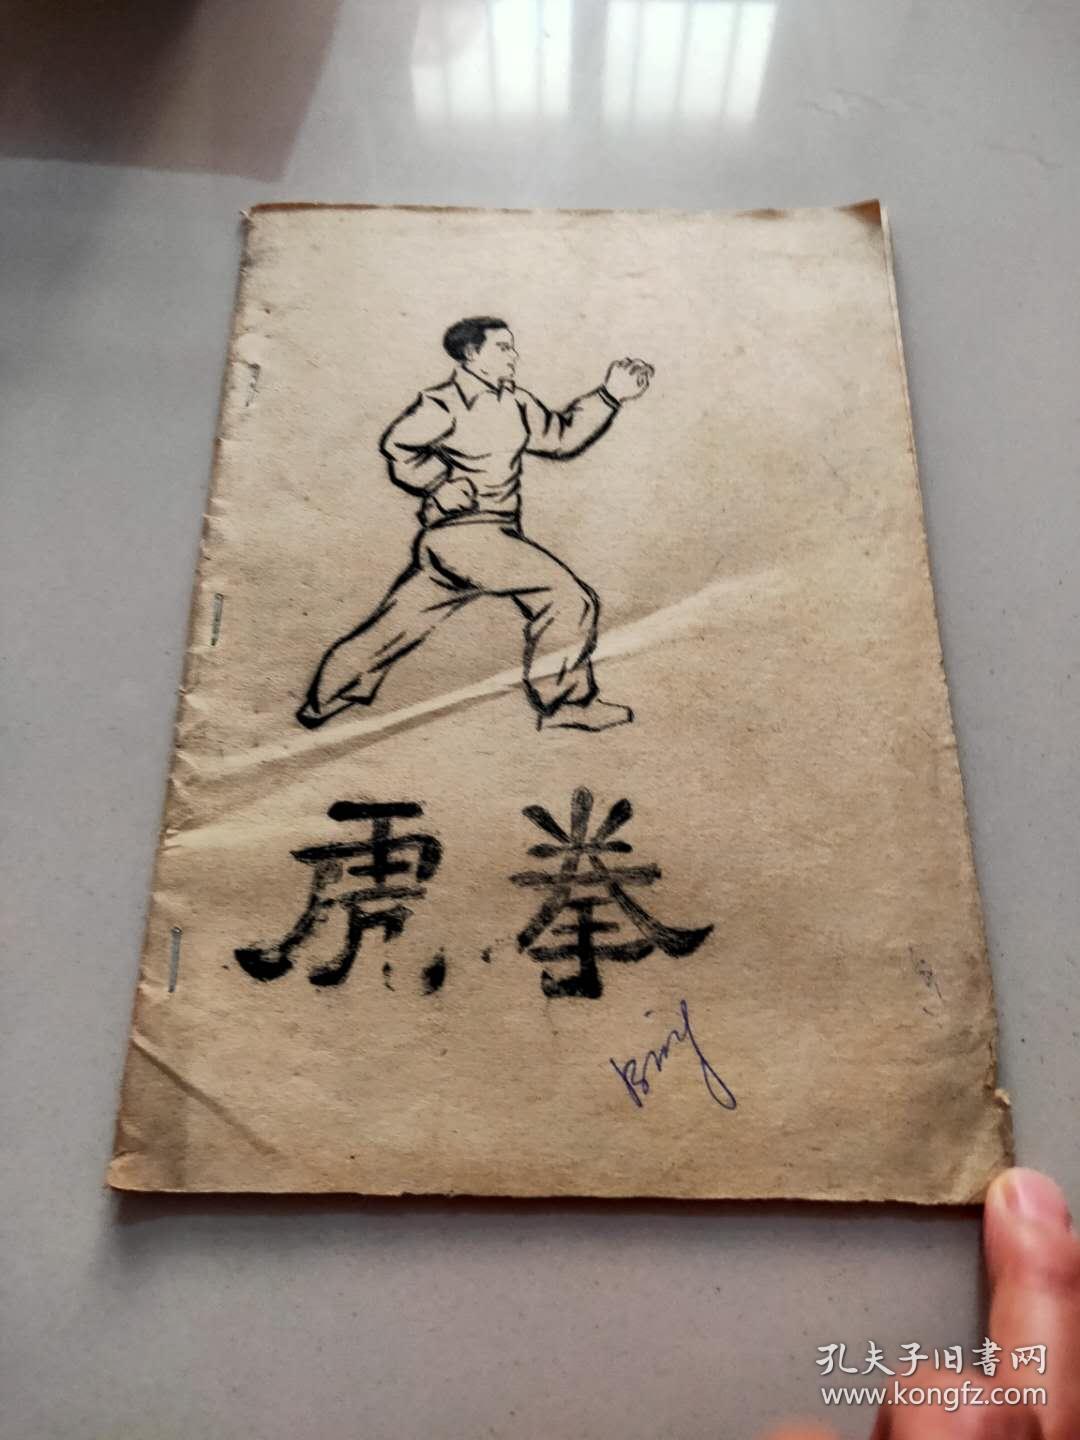 虎拳
Bing
孔夫子旧書网
www.kongfz.com